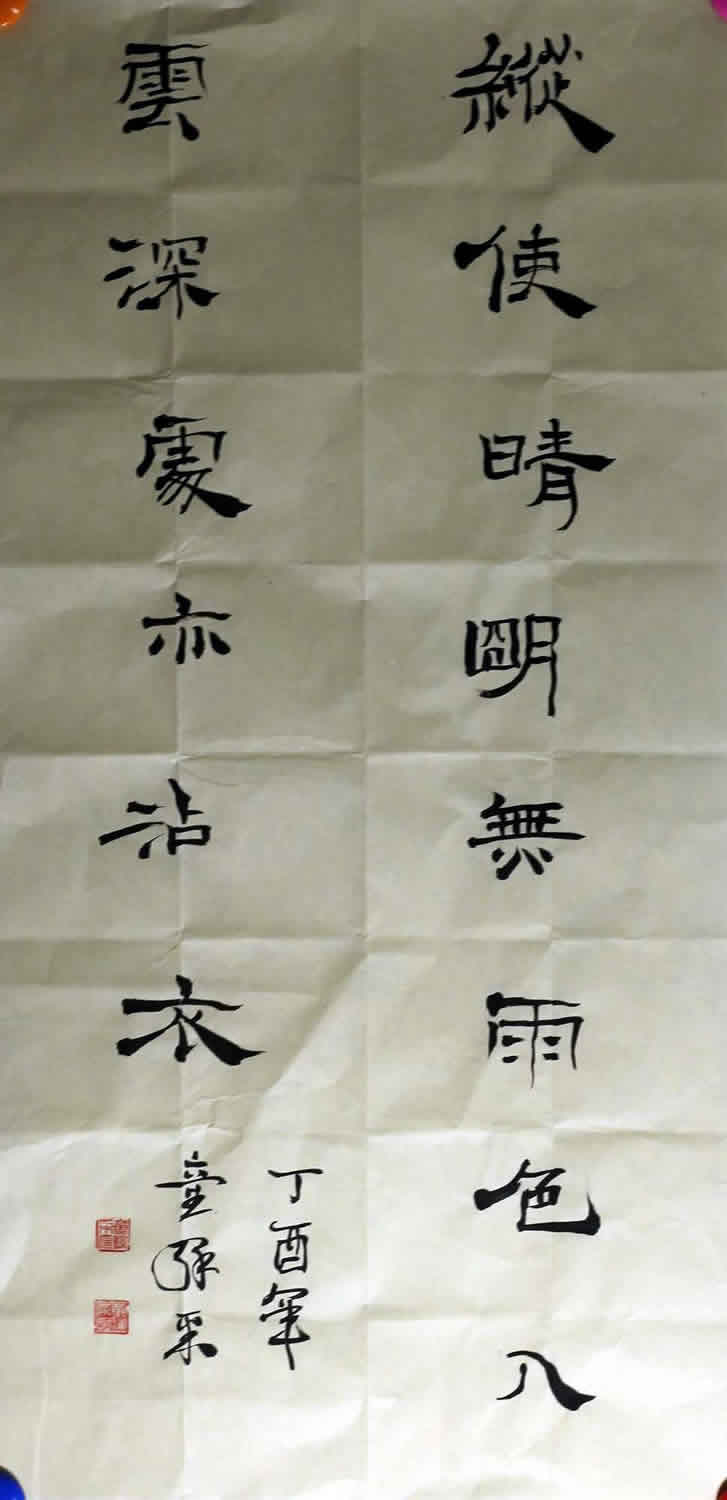 縱使晴明無雨色入
雲深處亦沾衣
丁酉年